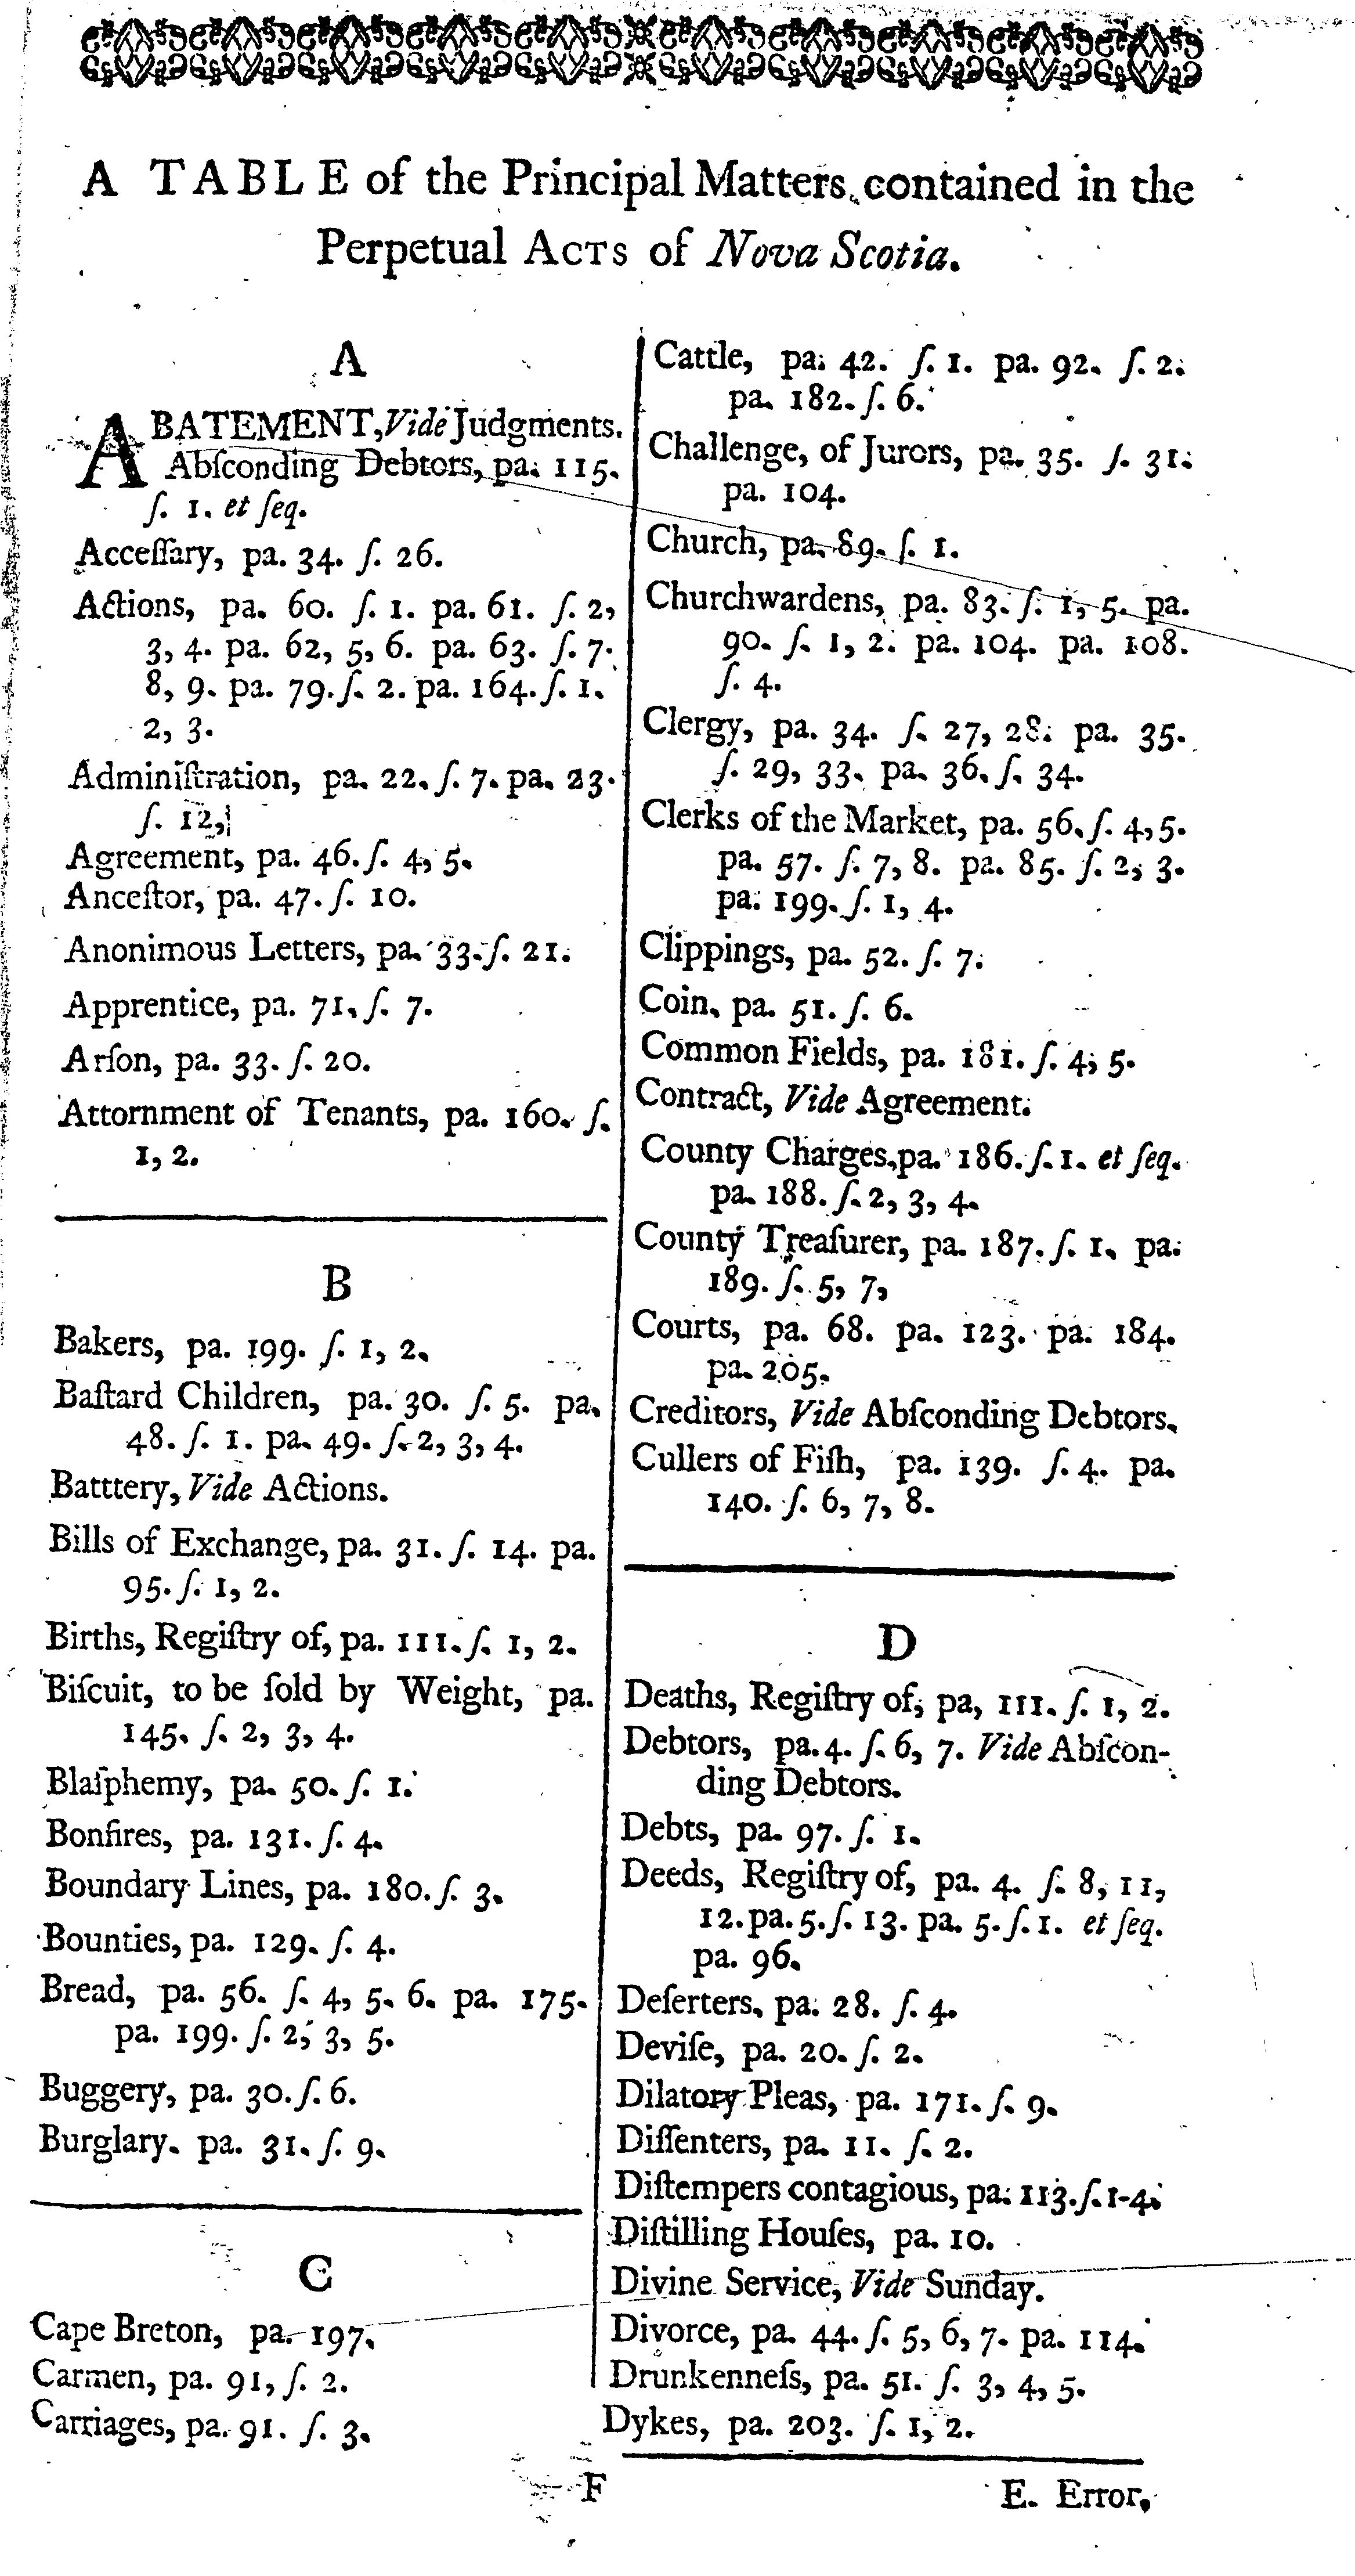 A TABLE of the Principal Matters contained in the
Perpetual ACTS of Nova Scotia.
A
ABATEMENT, Vide Judgments.
Abſconding Debtors, pa. 115.
ſ. 1. et ſeq.
Acceſſary, pa. 34. ſ. 26.
Actions, pa. 60. ſ. 1. pa. 61. ſ. 2,
3, 4. pa. 62, 5, 6. pa. 63. ſ. 7.
8, 9. pa. 79. ſ. 2. pa. 164. ſ. 1.
2, 3.
Adminiſtration, pa. 22. ſ. 7. pa. 23.
ſ. 12,
Agreement, pa. 46. ſ. 4, 5.
Anceſtor, pa. 47. ſ. 10.
Anonimous Letters, pa. 33. ſ. 21.
Apprentice, pa. 71. ſ. 7.
Arſon, pa. 33. ſ. 20.
Attornment of Tenants, pa. 160. ſ.
1, 2.
B
Bakers, pa. 199. ſ. 1, 2.
Baſtard Children, pa. 30. ſ. 5. pa.
48. ſ. 1. pa. 49. ſ. 2, 3, 4.
Batttery, Vide Actions.
Bills of Exchange, pa. 31. ſ. 14. pa.
95. ſ. 1, 2.
Births, Regiſtry of, pa. 111. ſ. 1, 2.
Biſcuit, to be ſold by Weight, pa.
145. ſ. 2, 3, 4.
Blaſphemy, pa. 50. ſ. 1.
Bonfires, pa. 131. ſ. 4.
Boundary Lines, pa. 180. ſ. 3.
Bounties, pa. 129. ſ. 4.
Bread, pa. 56. ſ. 4, 5. 6. pa. 175.
pa. 199. ſ. 2, 3, 5.
Buggery, pa. 30. ſ. 6.
Burglary. pa. 31. ſ. 9.
C
Cape Breton, pa. 197.
Carmen, pa. 91, ſ. 2.
Carriages, pa. 91. ſ. 3.
Cattle, pa. 42. ſ. 1. pa. 92. ſ. 2.
pa. 182. ſ. 6.
Challenge, of Jurors, pa. 35. ſ. 31.
pa. 104.
Church, pa. 89. ſ. 1.
Churchwardens, pa. 83. ſ. 1, 5. pa.
90. ſ. 1, 2. pa. 104. pa. 108.
ſ. 4.
Clergy, pa. 34. ſ. 27, 28. pa. 35.
ſ. 29, 33. pa. 36. ſ. 34.
Clerks of the Market, pa. 56. ſ. 4, 5.
pa. 57. ſ. 7, 8. pa. 85. ſ. 2, 3.
pa. 199. ſ. 1, 4.
Clippings, pa. 52. ſ. 7.
Coin, pa. 51. ſ. 6.
Common Fields, pa. 181. ſ. 4, 5.
Contract, Vide Agreement.
County Charges, pa. 186. ſ. 1. et ſeq.
pa. 188. ſ. 2, 3, 4.
County Treaſurer, pa. 187. ſ. 1. pa.
189. ſ. 5, 7,
Courts, pa. 68. pa. 123. pa. 184.
pa. 205.
Creditors, Vide Abſconding Debtors.
Cullers of Fiſh, pa. 139. ſ. 4. pa.
140. ſ. 6, 7, 8.
D
Deaths, Regiſtry of, pa, 111. ſ. 1, 2.
Debtors, pa. 4. ſ. 6, 7. Vide Abſcon-
ding Debtors.
Debts, pa. 97. ſ. 1.
Deeds, Regiſtry of, pa. 4. ſ. 8, 11,
12. pa. 5. ſ. 13. pa. 5. ſ. 1. et ſeq.
pa. 96.
Deſerters, pa. 28. ſ. 4.
Deviſe, pa. 20. ſ. 2.
Dilatory Pleas, pa. 171. ſ. 9.
Diſſenters, pa. 11. ſ. 2.
Diſtempers contagious, pa. 113. ſ. 1-4.
Diſtilling Houſes, pa. 10.
Divine Service, Vide Sunday.
Divorce, pa. 44. ſ. 5, 6, 7. pa. 114.
Drunkenneſs, pa. 51. ſ. 3, 4, 5.
Dykes, pa. 203. ſ. 1, 2.
F
E. Error,